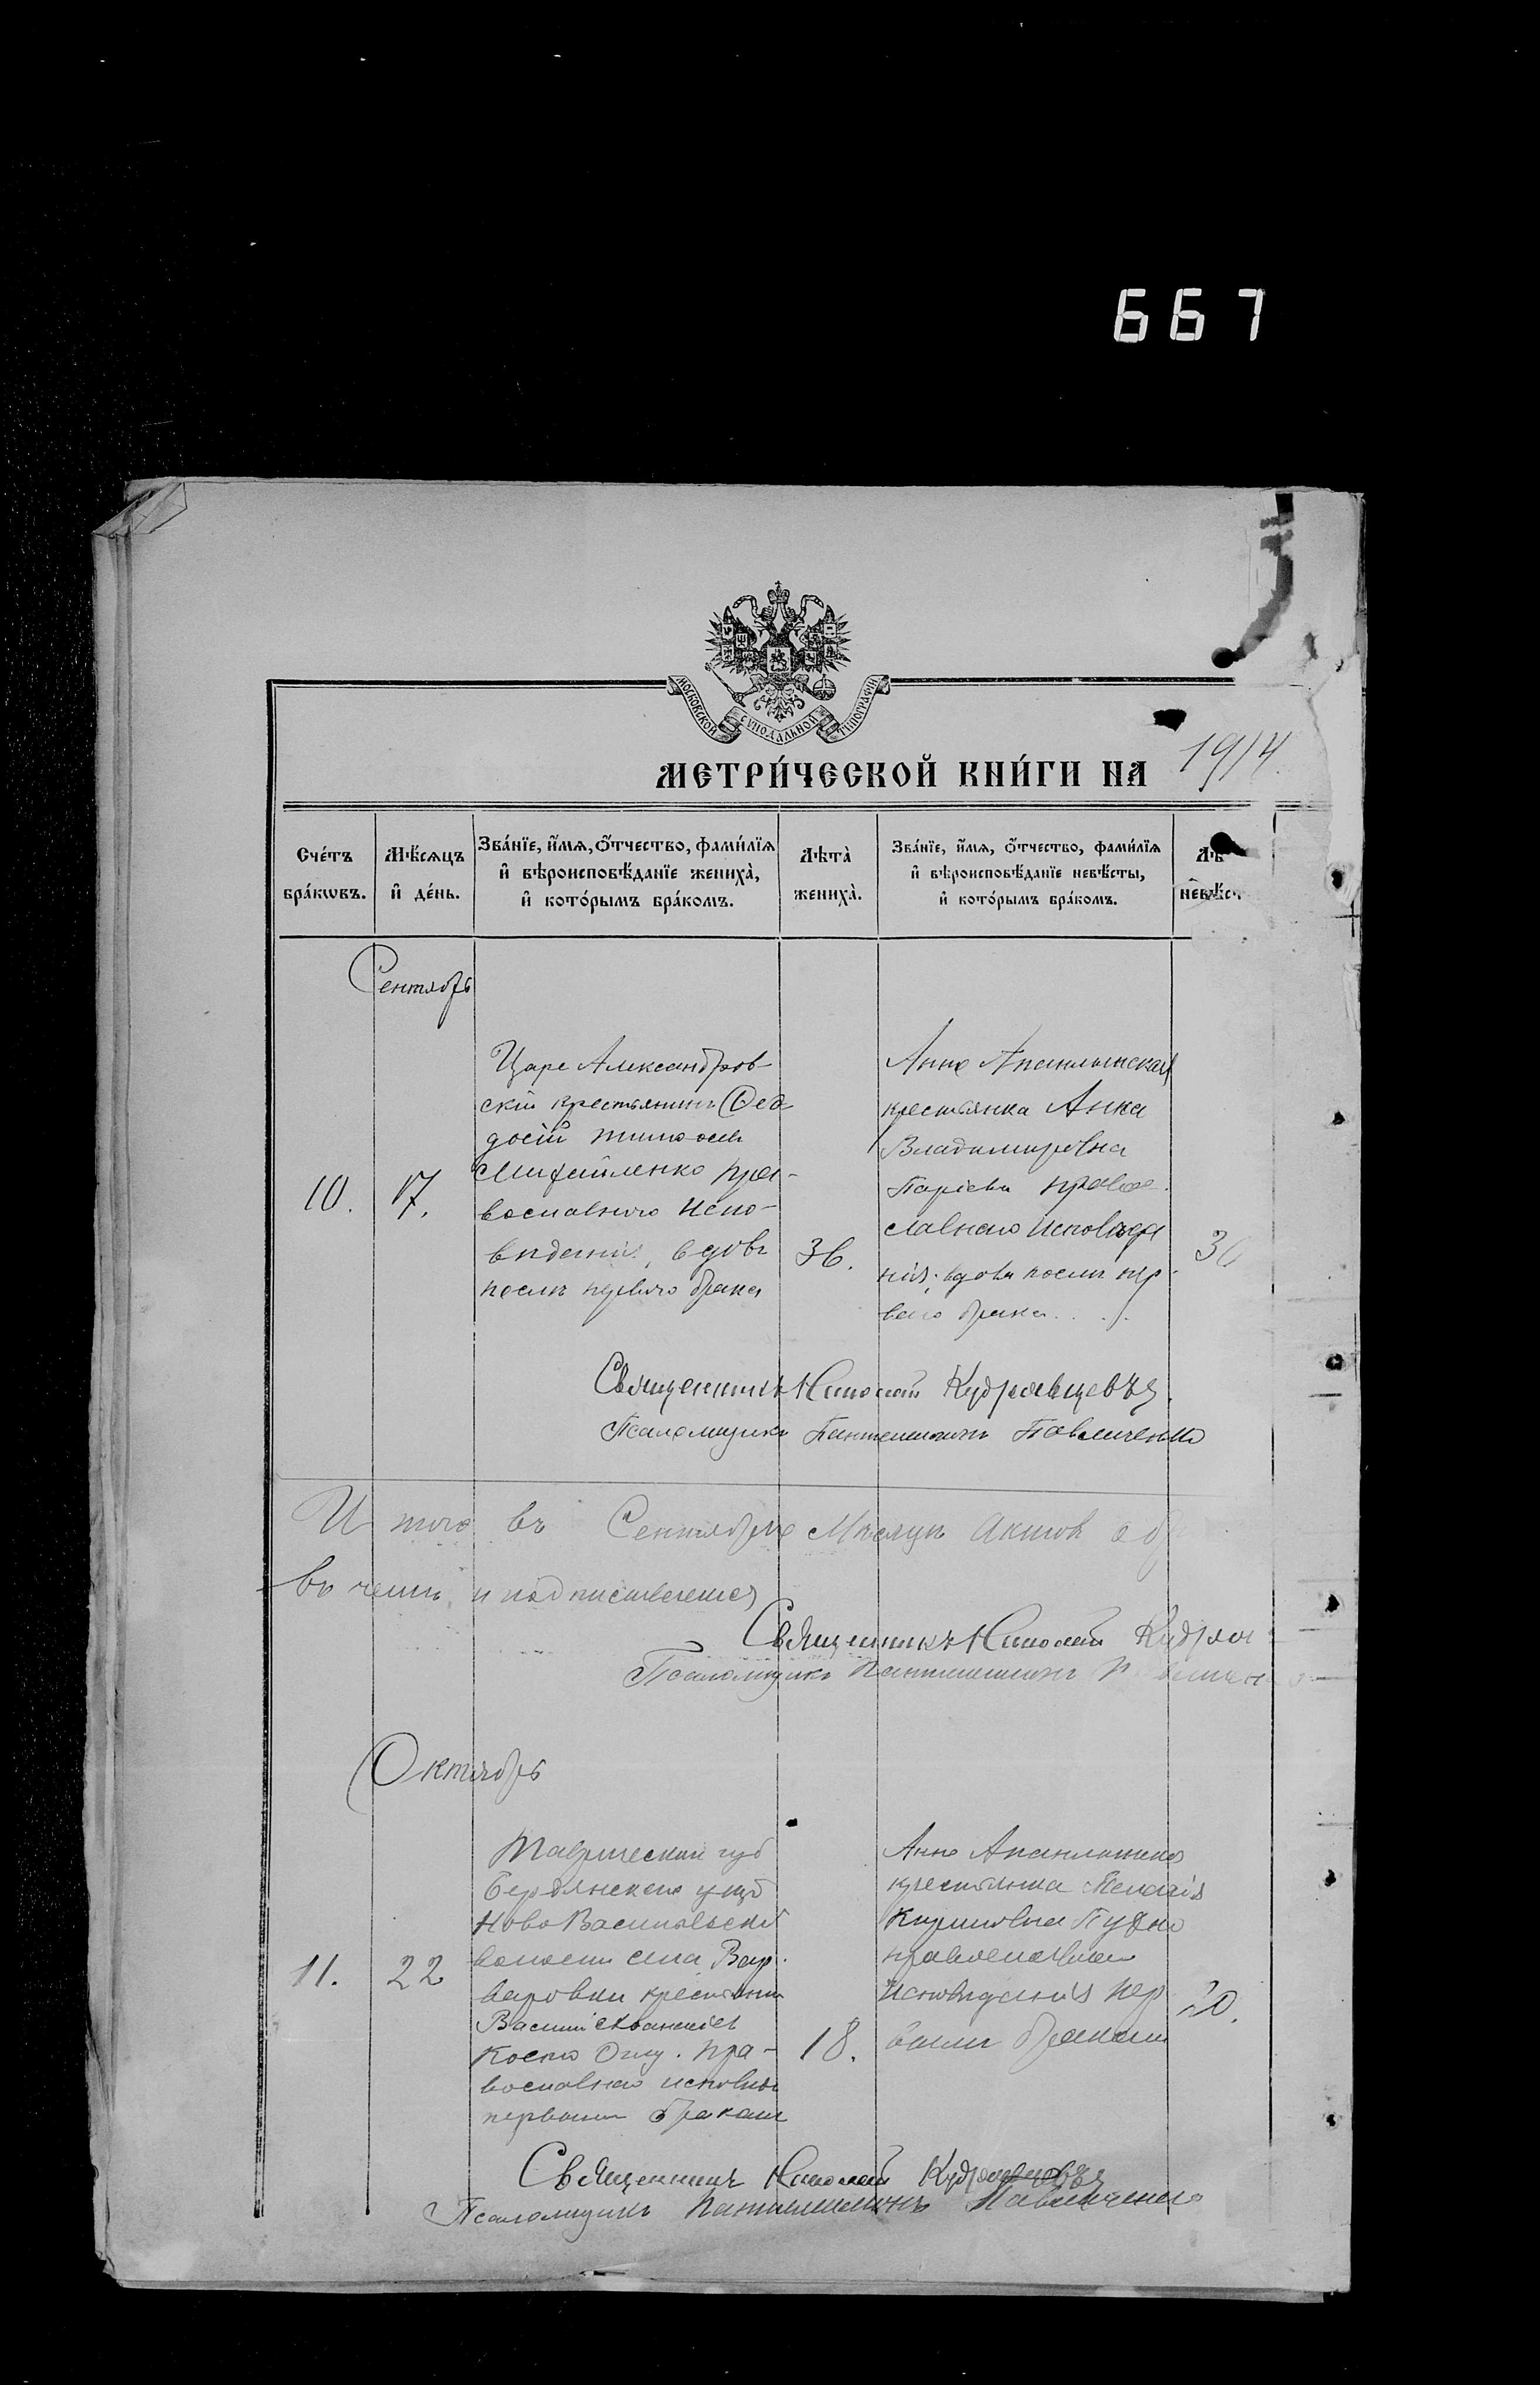 667
МОСКОВСКОЙ СѴНОДАЛЬНОЙ ТИПОГРАФІИ
МЕТРИ́ЧЕСКОЙ КНИ́ГИ НА 1914
Сче́тъ бра́кωвъ.
Мѣ́сѧцъ и҆ де́нь.
Зва́нїе, и҆́мѧ, ѻ҆́тчество, фами́лїѧ
и҆ вѣроисповѣ́данїе жениха̀,
и҆ кото́рымъ бра́комъ.
Лѣта̀ жениха̀.
Зва́нїе, и҆́мѧ, ѻ҆́тчество, фами́лїѧ
и҆ вѣроисповѣ́данїе невѣ́сты,
и҆ кото́рымъ бра́комъ.
Лѣ
невѣ́с
Сентябрь
10.
17.
Царе Александров-
скій крестьянинъ Ѳео
досій
Михайленко пра-
вославного испо-
вѣданія, вдовъ
послѣ первого брака
36.
Анно
крестьянка Анна
Владимировна
право
славнаго исповѣда
нія, вдова послѣ пер-
ваго брака
Священникъ Николай Кудрявцевъ
Псаломщикъ Пантелеимонъ Павличенко
И того въ Сентябрѣ Мѣсяцѣ
въ чемъ и подписываемся
Священникъ Николай Кудряв
Псаломщикъ Пантелеимонъ
Октябрь
11.
22
Таврической губ
Бердянскаго уѣзд
Ново Васильевской
волости села Вар
варовки крестьянин
Василій
пра-
вославнаго исповѣд
первымъ бракомъ
18.
Анно
крестьянка
Кириловна
православнаго
исповѣданія пер
вымъ бракомъ
20.
Священникъ Николай Кудрявцевъ
Псаломщикъ Пантелеимонъ Павличенко